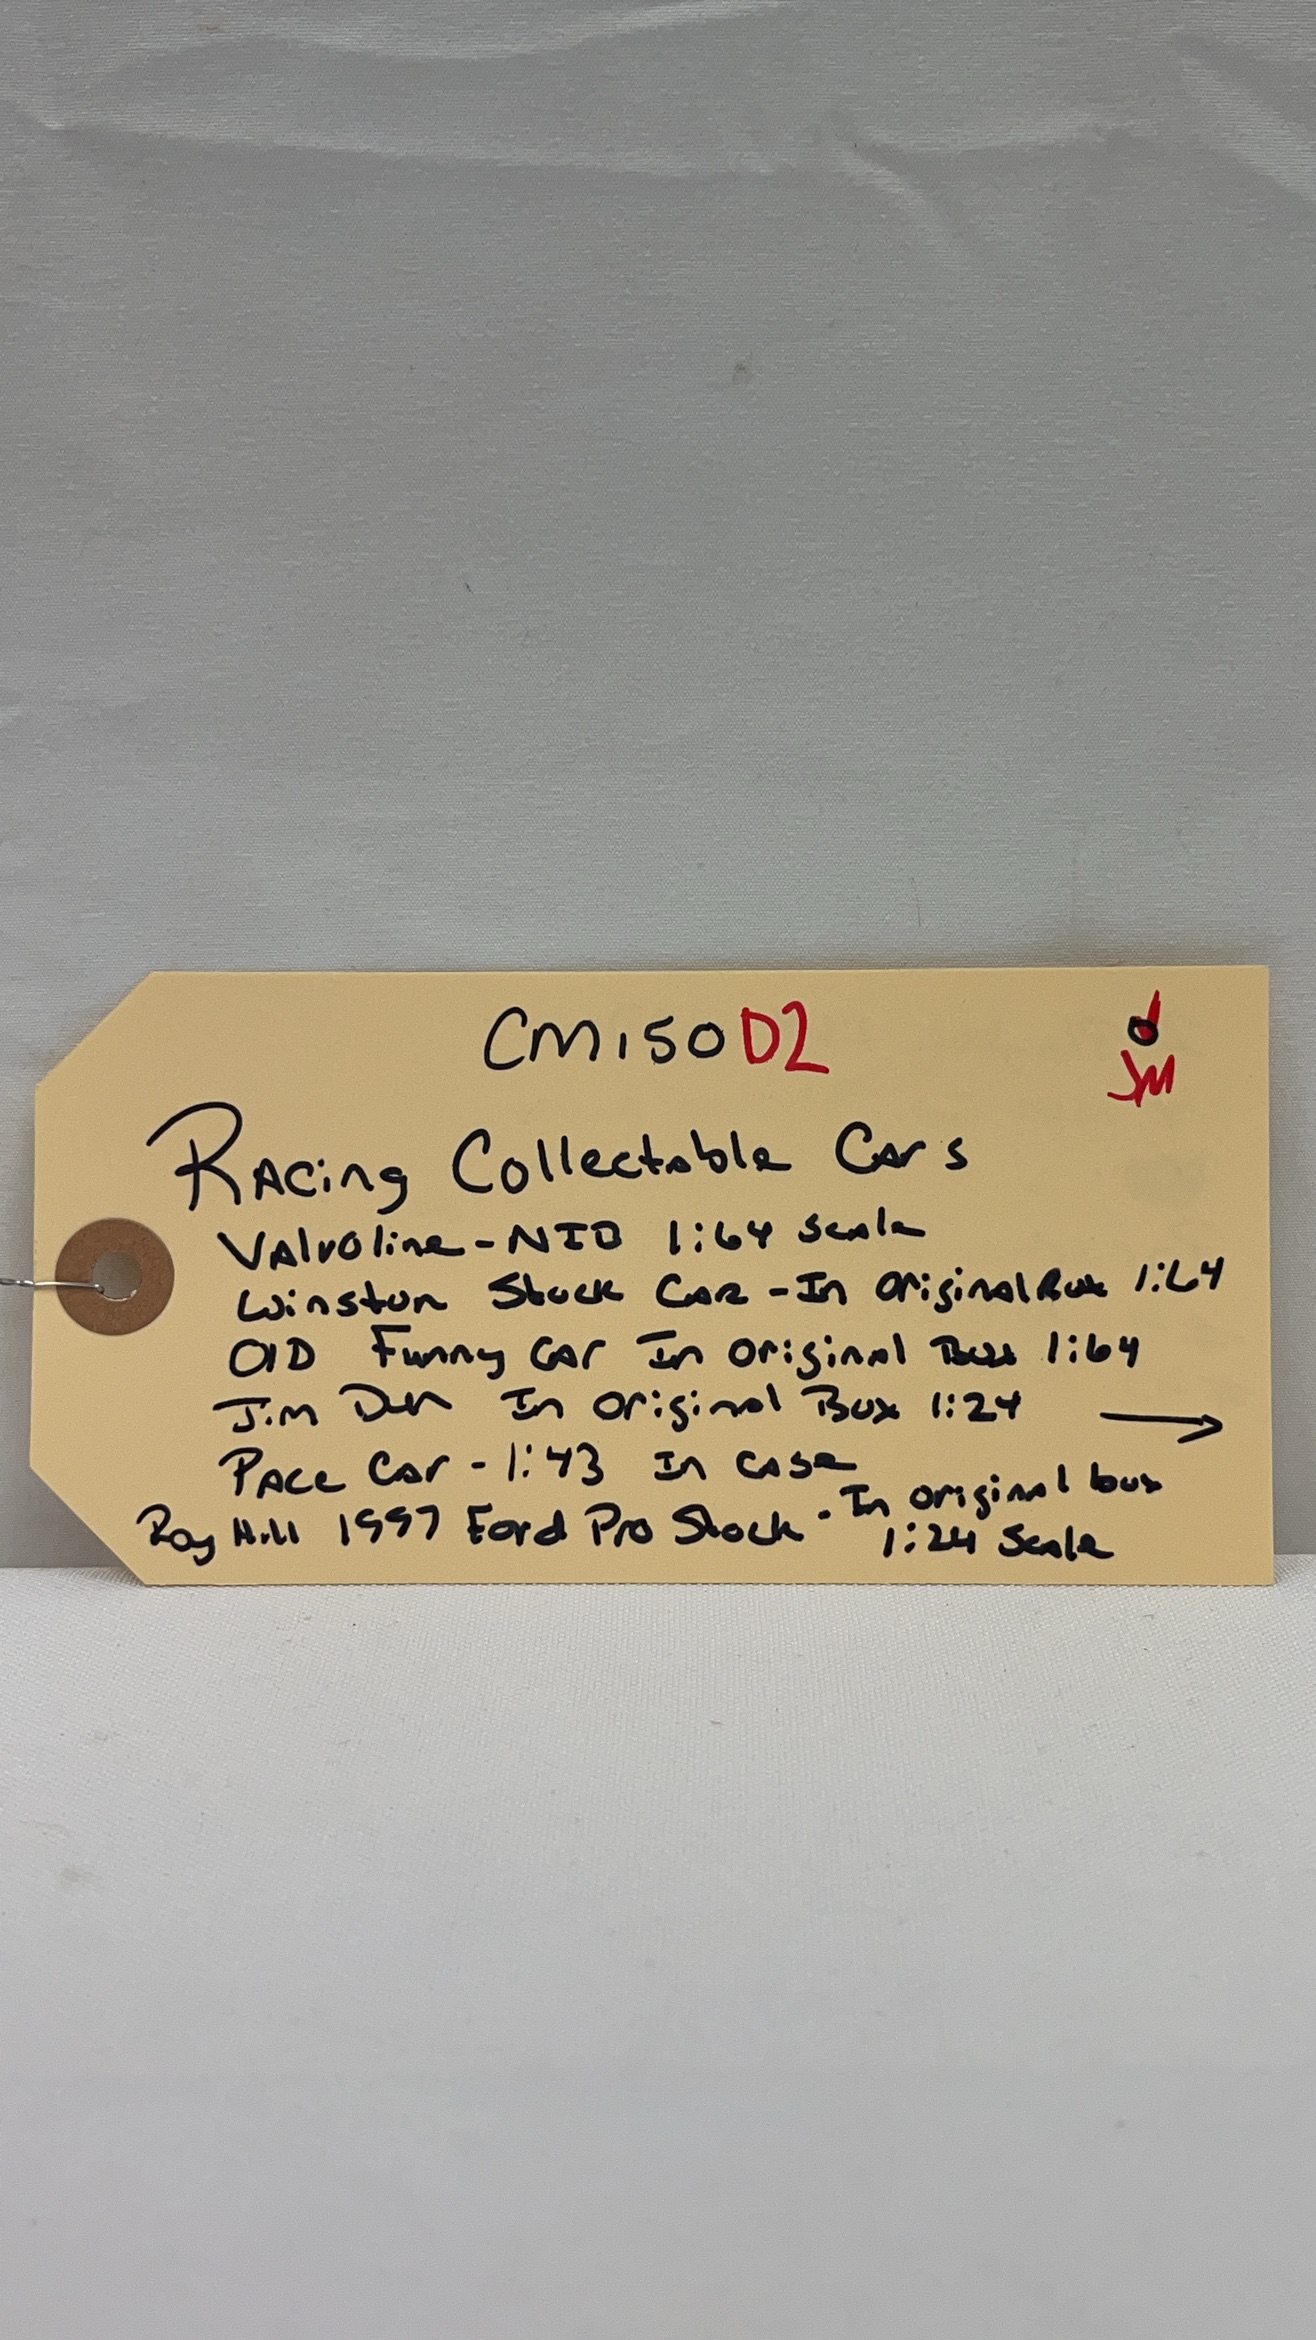 CM150D2
JM
Racing Collectable Cars
Valvoline - NIB 1:64 Scale
Winston Stock Car - In Original Box 1:64
Old Funny Car In Original Box 1:64
Jim Dun In Original Box 1:24 →
Pace Car - 1:43 In Case
Roy Hill 1997 Ford Pro Stock - In original box
1:24 Scale